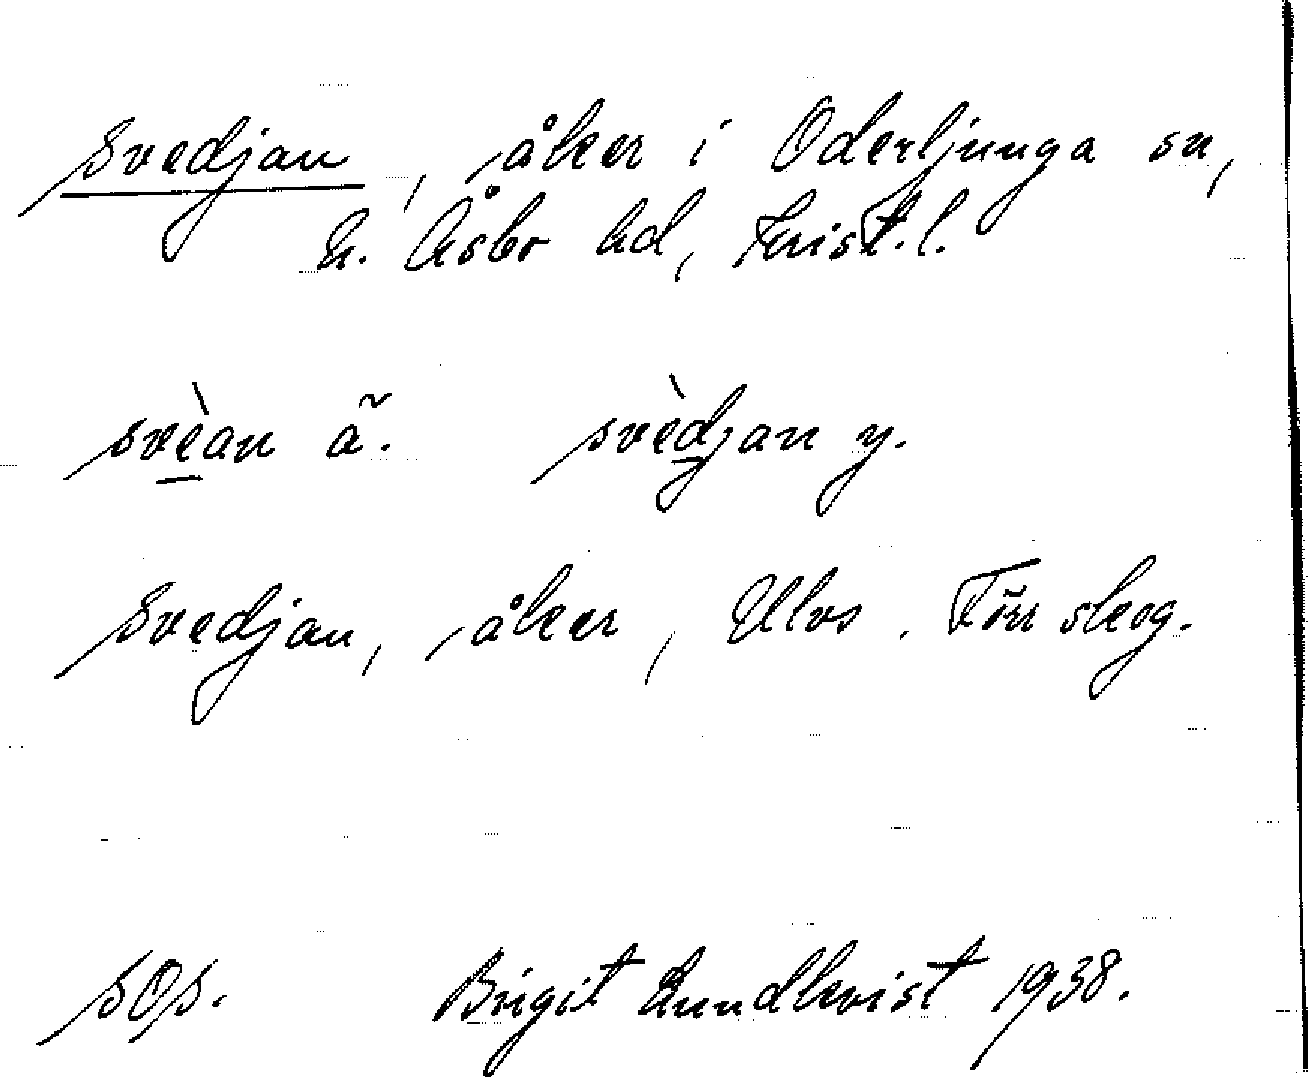 Svedjan, åker i Oderljunga sn,
N. Åsbo hd, Krist. l.
svèan ã. svèdjan y.
Svedjan, åker, Ulvs. Förr skog.
SOp. Birgit Lundkvist 1938.